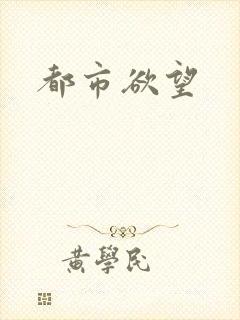 都市欲望
黄學民